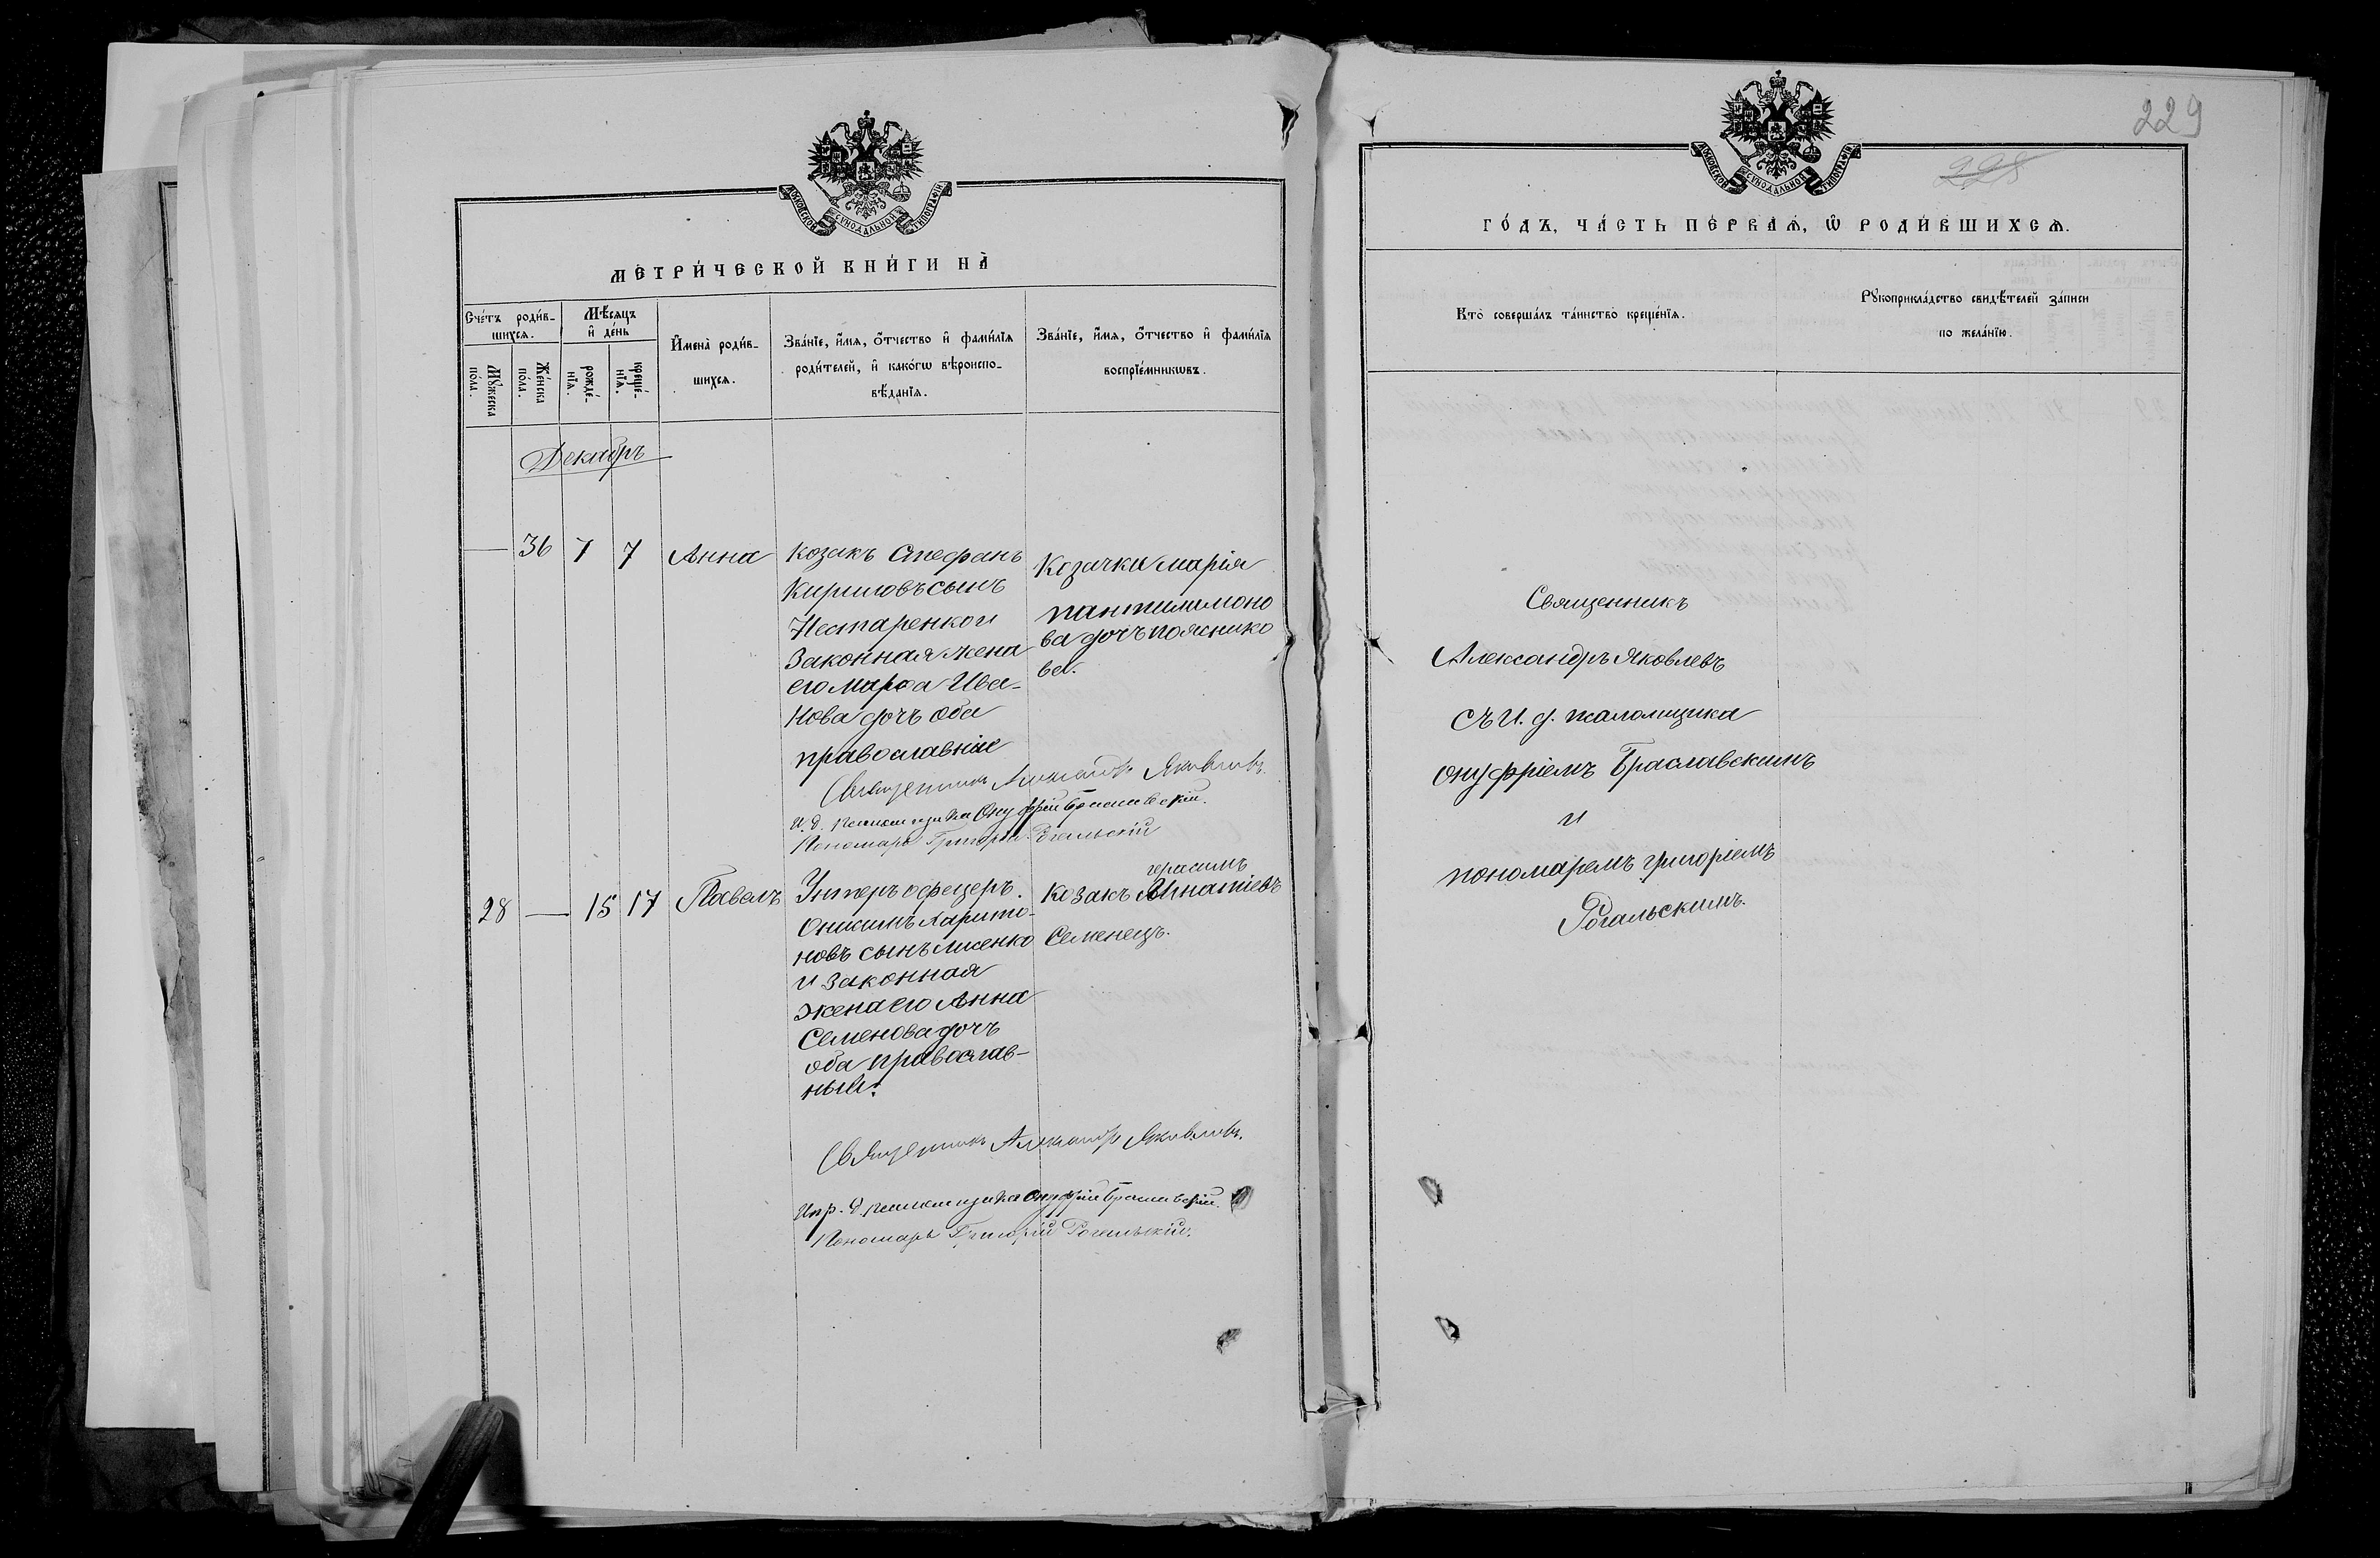 МОСКОВСКОЙ СУНОДАЛЬНОЙ ТИПОГРАФІИ
МЕТРИ́ЧЕСКОЙ КНИ́ГИ НА̀
Сче́тъ роди́в-
шихсѧ.
Мꙋ́жеска
по́ла.
Же́нска
по́ла.
Мѣ́сѧцъ
и҆ де́нь
рожде́-
нїѧ.
креще́-
нїѧ.
И҆мена̀ роди́в-
шихсѧ.
Зва́нїе, и҆́мѧ, ѻ҆́тчество и҆ фами́лїѧ
роди́телей, и҆ како́гѡ вѣроиспо-
вѣ́данїѧ.
Зва́нїе, и҆́мѧ, ѻ҆́тчество и҆ фами́лїѧ
воспрїе́мникѡвъ.
Декабръ
— 36 7 7 Анна
Козакъ Стефанъ
Кириловъ сынъ
Нестаренко и
Законная жена
его Марѳа Ива-
нова дочь оба
православніе
Козачка Марія
Пантилимоно
ва дочъ поясико
ва.
Священникъ Александръ Яковлевъ.
И. д. псаломщика Онуфрій Браславскій.
Пономарь Григорій Рогальскій
28 — 15 17 Павелъ
Унтеръ офецеръ.
Онисимъ Харито-
новъ сынъ лисенко
и законная
жена его Анна
Семенова дочъ
оба православ-
ныи.
герасимъ
Козакъ Игнатіевъ
Семенецъ.
Священникъ Александръ Яковлевъ.
Испр. д. псаломщика Онуфрій Браславскій.
Пономарь Григорій Рогальскій.
229
228
МОСКОВСКОЙ СУНОДАЛЬНОЙ ТИПОГРАФІИ
ГО́ДЪ, ЧА́СТЬ ПЕ́РВАѦ, Ѡ҆ РОДИ́ВШИХСѦ.
Кто̀ соверша́лъ та́инство креще́нїѧ.
Рꙋкоприкла́дство свидѣ́телей за́писи
по жела́нїю.
Священникъ
Александръ Яковлевъ
съ И. д. псаломщика
Онуфріемъ Браславскимъ
и
пономаремъ григоріемъ
Рогальскимъ.